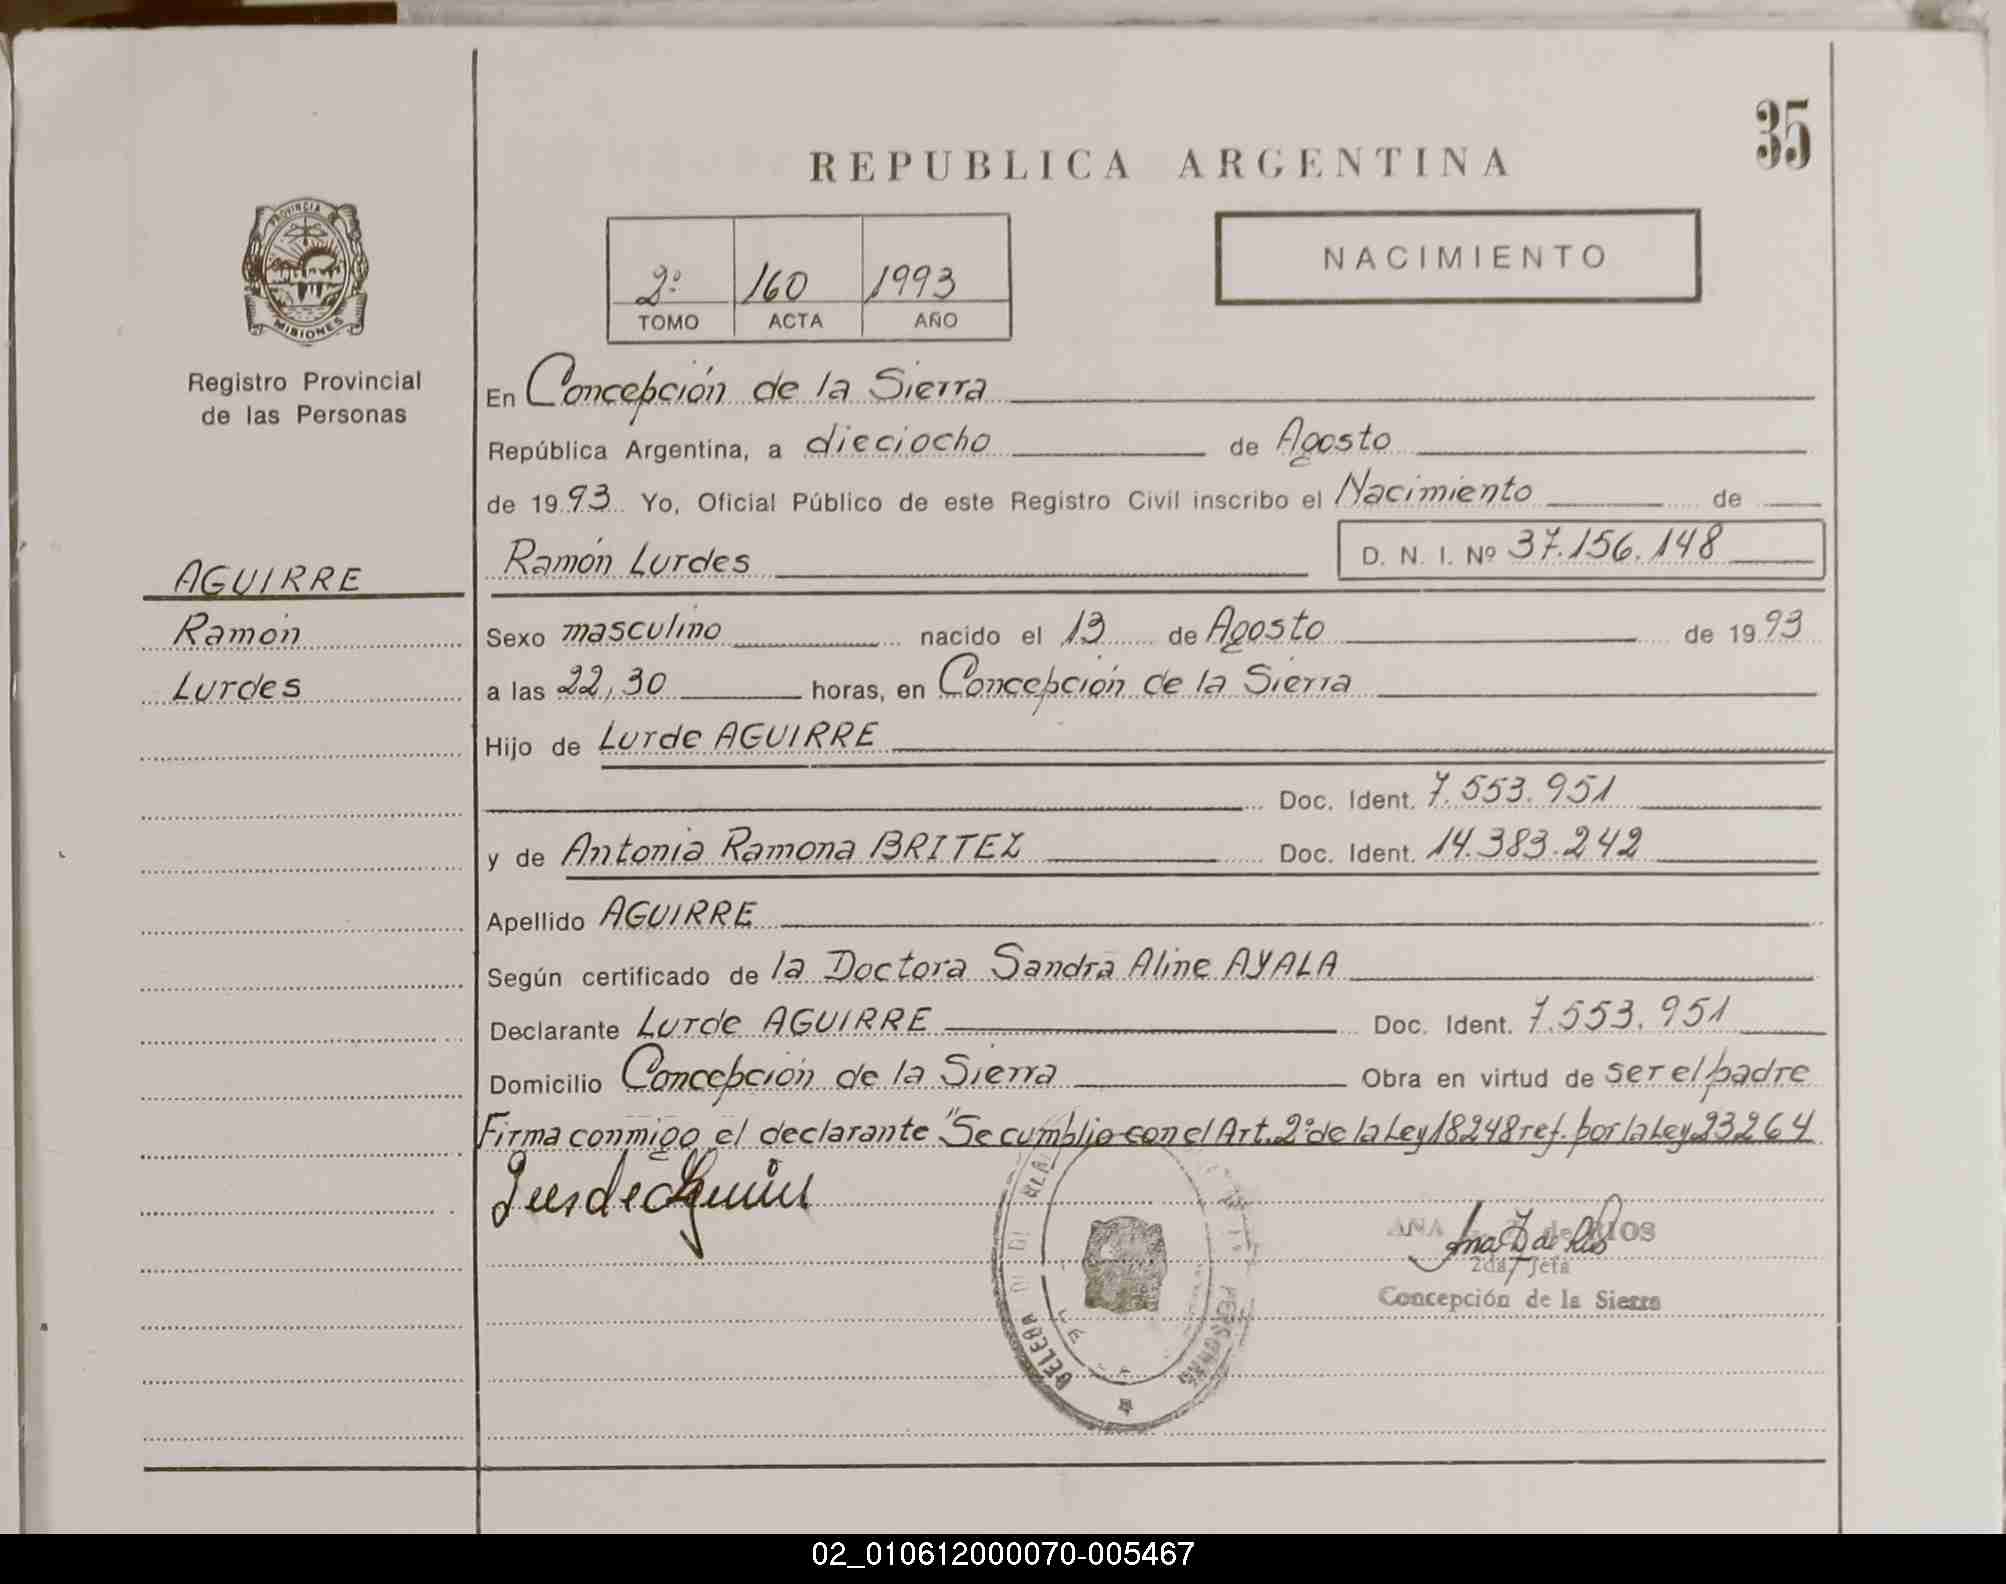 35
REPUBLICA ARGENTINA
PROVINCIA DE
MISIONES
Registro Provincial
de las Personas
NACIMIENTO
2º 160 1993
TOMO ACTA AÑO
En Concepción de la Sierra
República Argentina, a dieciocho de Agosto
de 1993 Yo, Oficial Público de este Registro Civil inscribo el Nacimiento de
Ramón Lurdes D. N. I. Nº 37.156.148
AGUIRRE
Ramón
Lurdes
Sexo masculino nacido el 13 de Agosto de 1993
a las 22,30 horas, en Concepción de la Sierra
Hijo de Lurde AGUIRRE
Doc. Ident. 7.553.951
y de Antonia Ramona BRITEZ Doc. Ident. 14.383.242
Apellido AGUIRRE
Según certificado de la Doctora Sandra Aline AYALA
Declarante Lurde AGUIRRE Doc. Ident. 7.553.951
Domicilio Concepción de la Sierra Obra en virtud de ser el padre
Firma conmigo el declarante "Se cumplio con el Art. 2º de la Ley 18248 ref. por la Ley 23264
ANA de RIOS
2da Jefa
Concepción de la Sierra
PERSONAS
02_010612000070-005467